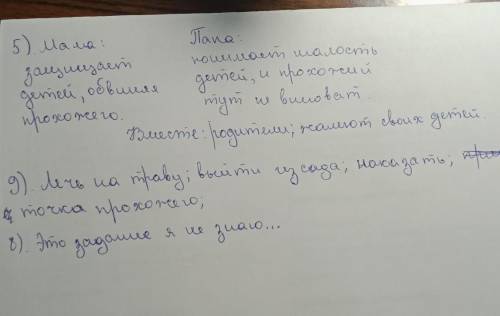 5) Мама: Папа:
защищает понимает шалость
детей, обвиняя детей, и прохожий
прохожего. тут не виноват.
Вместе: родители; жалеют своих детей.
9). Лечь на траву; выйти из сада; наказать;
точка прохожего;
8). Это задание я не знаю...